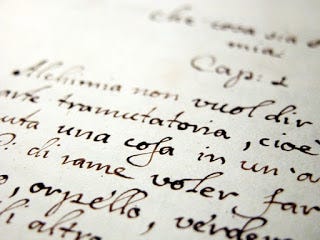 che cosa sia
mia:
Cap: 1
Alchimia non vuol dir
arte tramutatoria, cioè
una cosa in un'a
di rame voler far
, orpello, verder
li altr